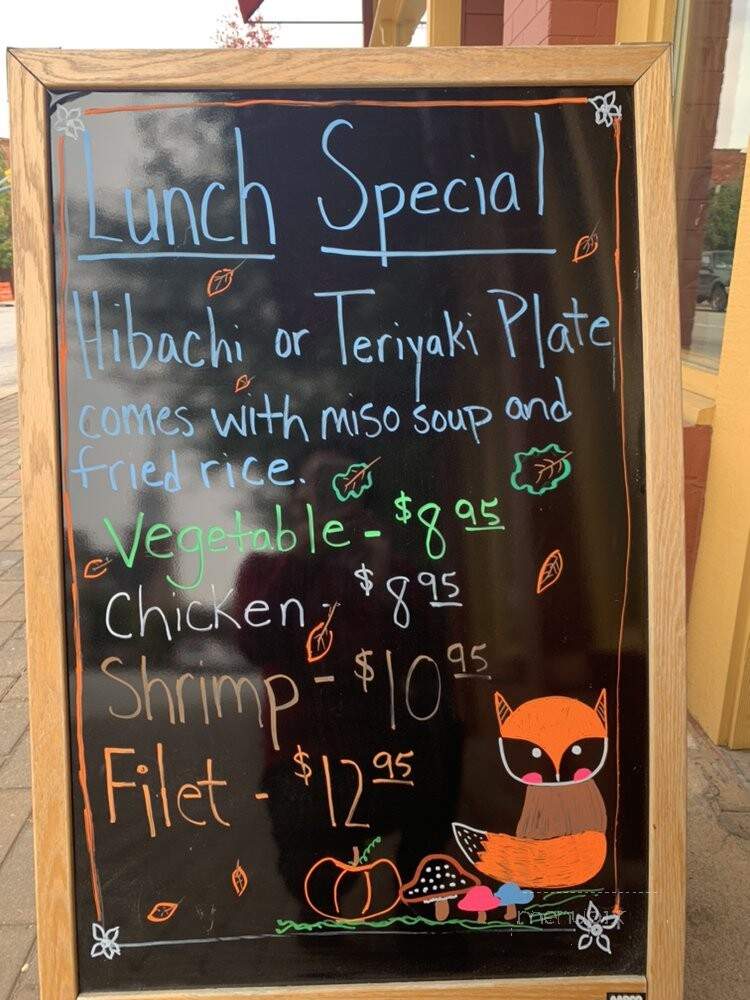 Lunch Special
Hibachi or Teriyaki Plate
comes with miso soup and
fried rice.
Vegetable - $8 95
Chicken - $8 95
Shrimp - $10 95
Filet - $12 95